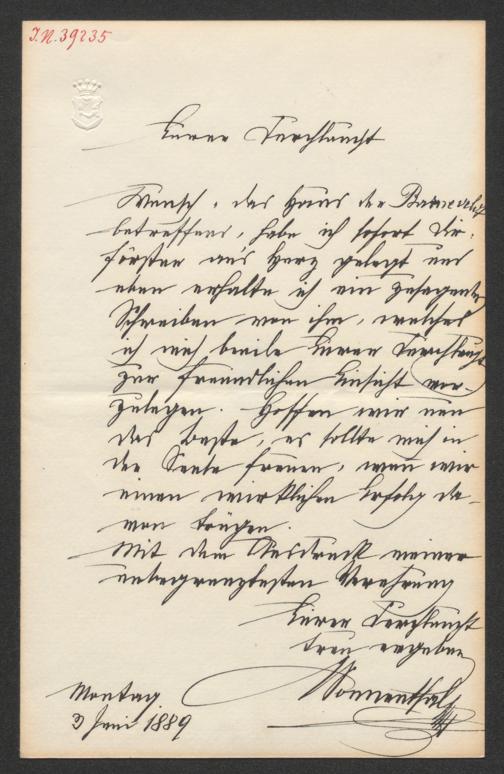 J.N. 39235
Eurer Durchlaucht
Wunsch, das Haus der
betreffend, habe ich sofort
Förster an's Herz gelegt und
eben erhalte ich ein zusagendes
Schreiben von ihm, welches
ich mich beeile Eurer Durchlaucht
zur freundlichen Einsicht vor-
zulegen. Hoffen wir nun
das Beste, es sollte mich in
der Seele freuen, wenn wir
einen wirklichen Erfolg da-
von trügen.
Mit dem Ausdruck meiner
unbegrenztesten Verehrung
Eurer Durchlaucht
treu ergeben
Sonnenthal
Montag
3 Juni 1889